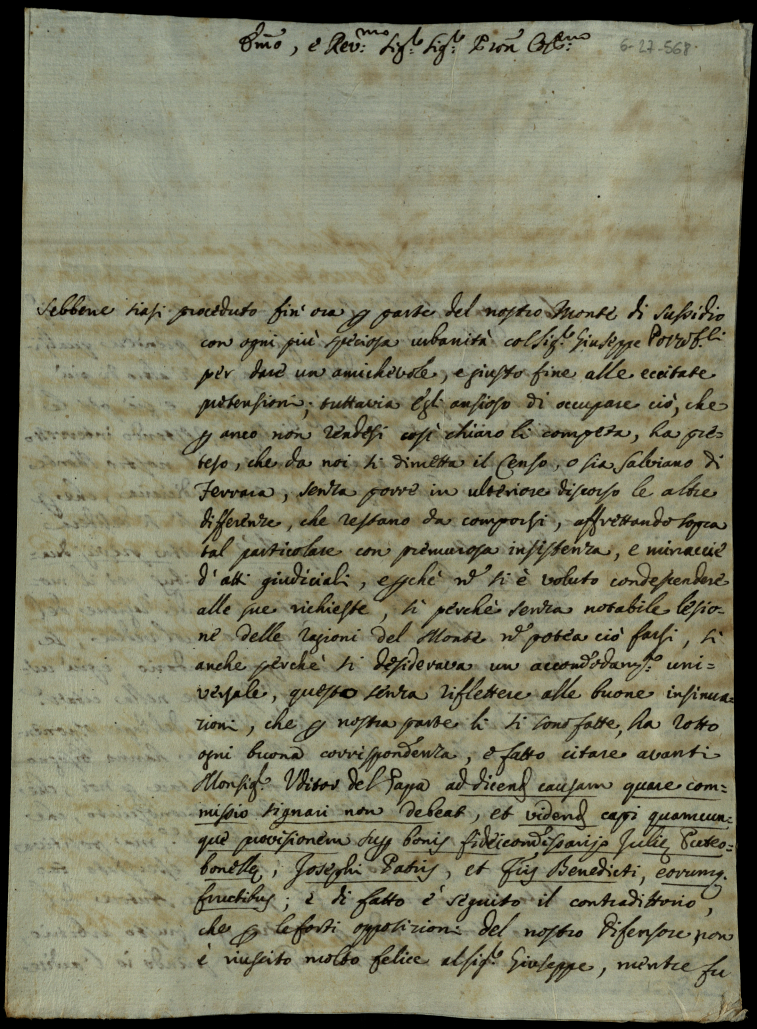 Emo, e Rev:mo Sig:r Sig:r Pron Col:mo
6-27-568
Sebbene siasi proceduto fin'ora p parte del nostro Monte di Sussidio
con ogni più speciosa urbanità col Sig:r Giuseppe
per dare un amichevole, e giusto fine alle eccitate
pretensioni; tuttavia Egli ansioso di occupare ciò, che
p anco non rendesi così chiaro li competa, ha pre=
teso, che da noi si dimetta il Censo, o sia Salviano di
Ferrara, senza porre in ulteriore discorso le altre
differenze, che restano da comporsi, affrettando sopra
tal particolare con premurosa insistenza, e minaccie
d'atti giudiciali, e pchè nō si è voluto condescendere
alle sue richieste, sì perchè senza notabile lesio=
ne delle ragioni del Monte nō potea ciò farsi, sì
anche perchè si desiderava un accomodam:o uni=
versale, questo senza riflettere alle buone insinua=
zioni, che p nostra parte li si sono fatte, ha rotto
ogni buona corrispondenza, e fatto citare avanti
Monsig:r Uditor del Papa ad dicend causam quare com=
missio signari non debeat, et vidend capi quamcun=
que provisionem sup bonis fideicommissarijs Julię Puteo=
bonellę, Josephi Patris, et Fris Benedicti, eorumq.
fructibus; e di fatto è seguito il contradittorio,
che p le forti opposizioni del nostro difensore non
è riuscito molto felice al Sig:r Giuseppe, mentre fu